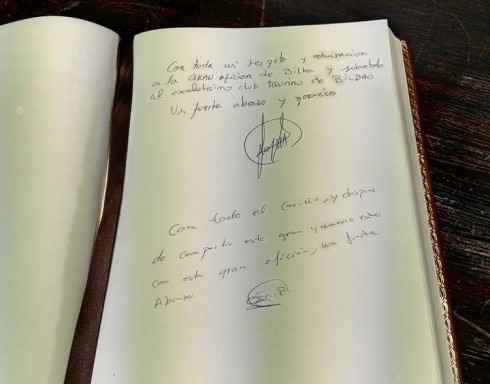 Con toda mi respeto y admiracion
a la GRAN aficion de Bilbao y sobretodo
al excelentisimo club taurino de BILBAO
Un fuerte abrazo y
Con todo el Cariño, y despues
de compartir este gran y ameno rato
con esta gran afición, un fuerte
Abrazo